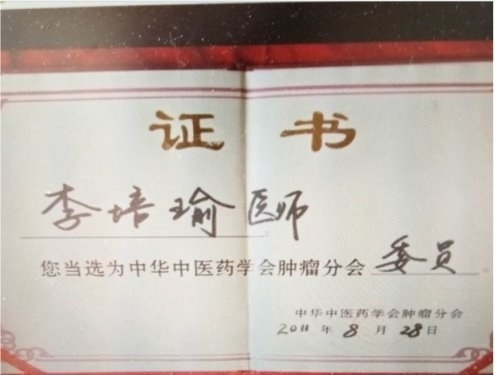 证书
李培瑜医师
您当选为中华中医药学会肿瘤分会委员
中华中医药学会肿瘤分会
2011年8月28日